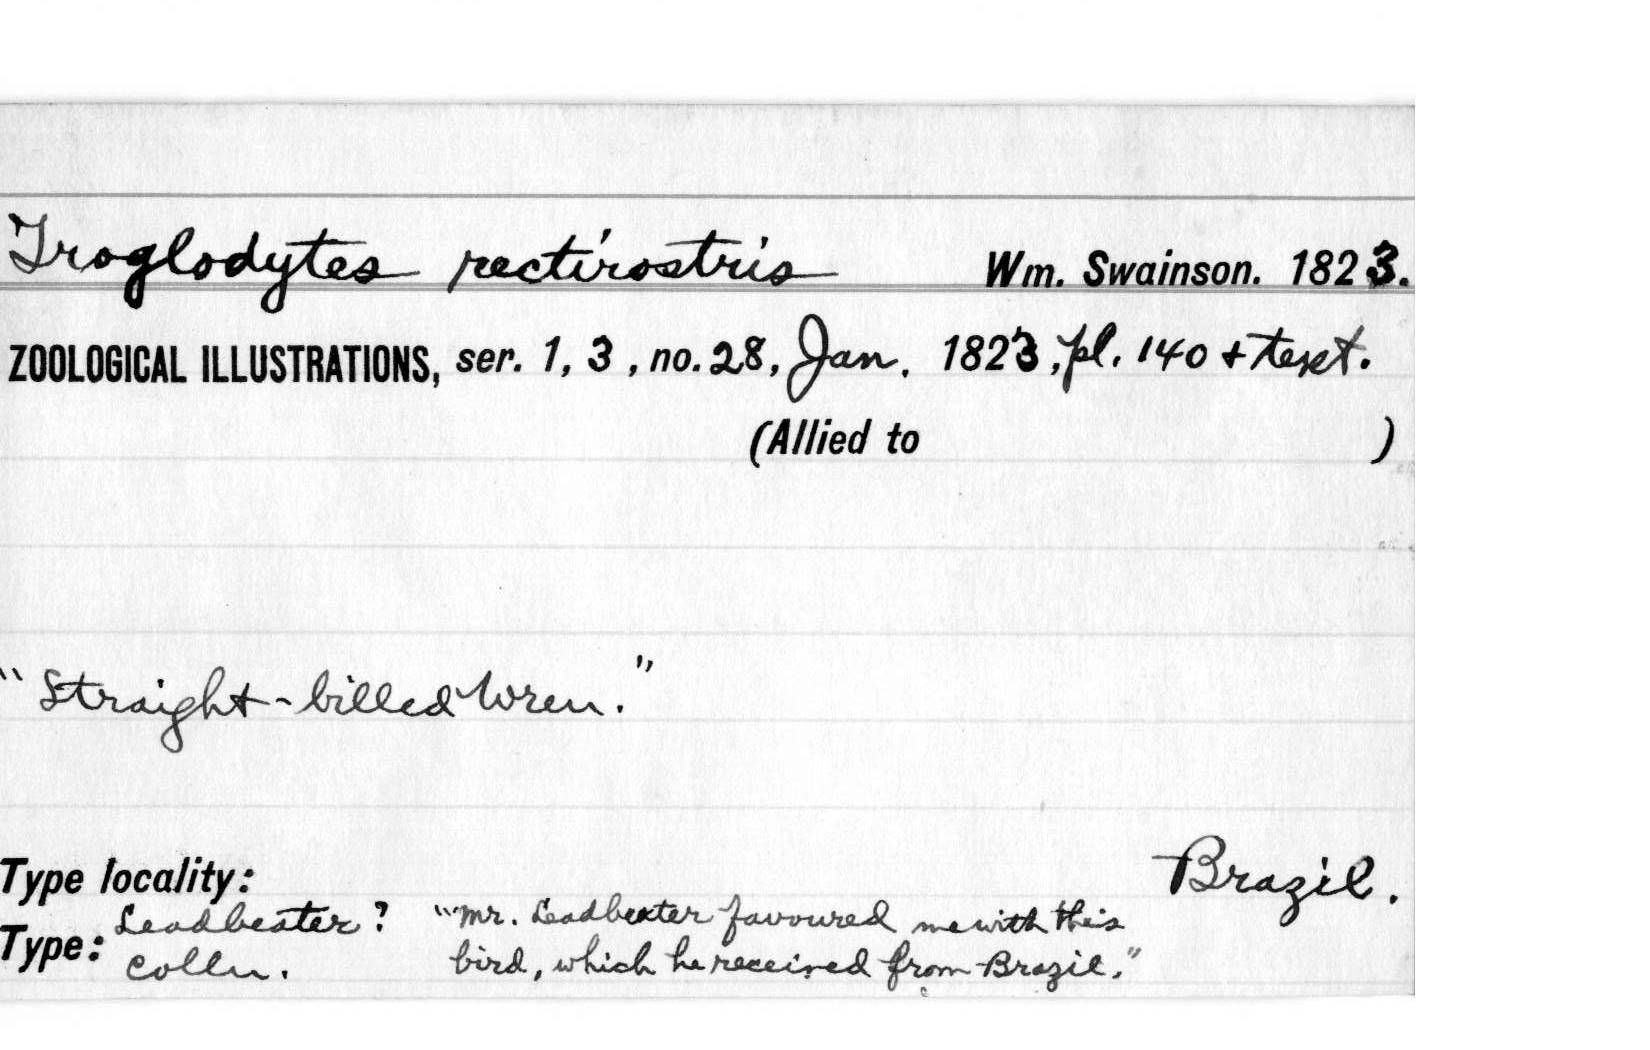 Troglodytes rectirostris Wm. Swainson. 1823.
ZOOLOGICAL ILLUSTRATIONS, ser. 1, 3, no. 28, Jan. 1823, pl. 140 + text.
(Allied to )
"Straight-billed Wren."
Type locality: Brazil.
Type: Leadbeater? colln. "Mr. Leadbeater favoured me with this
bird, which he received from Brazil."